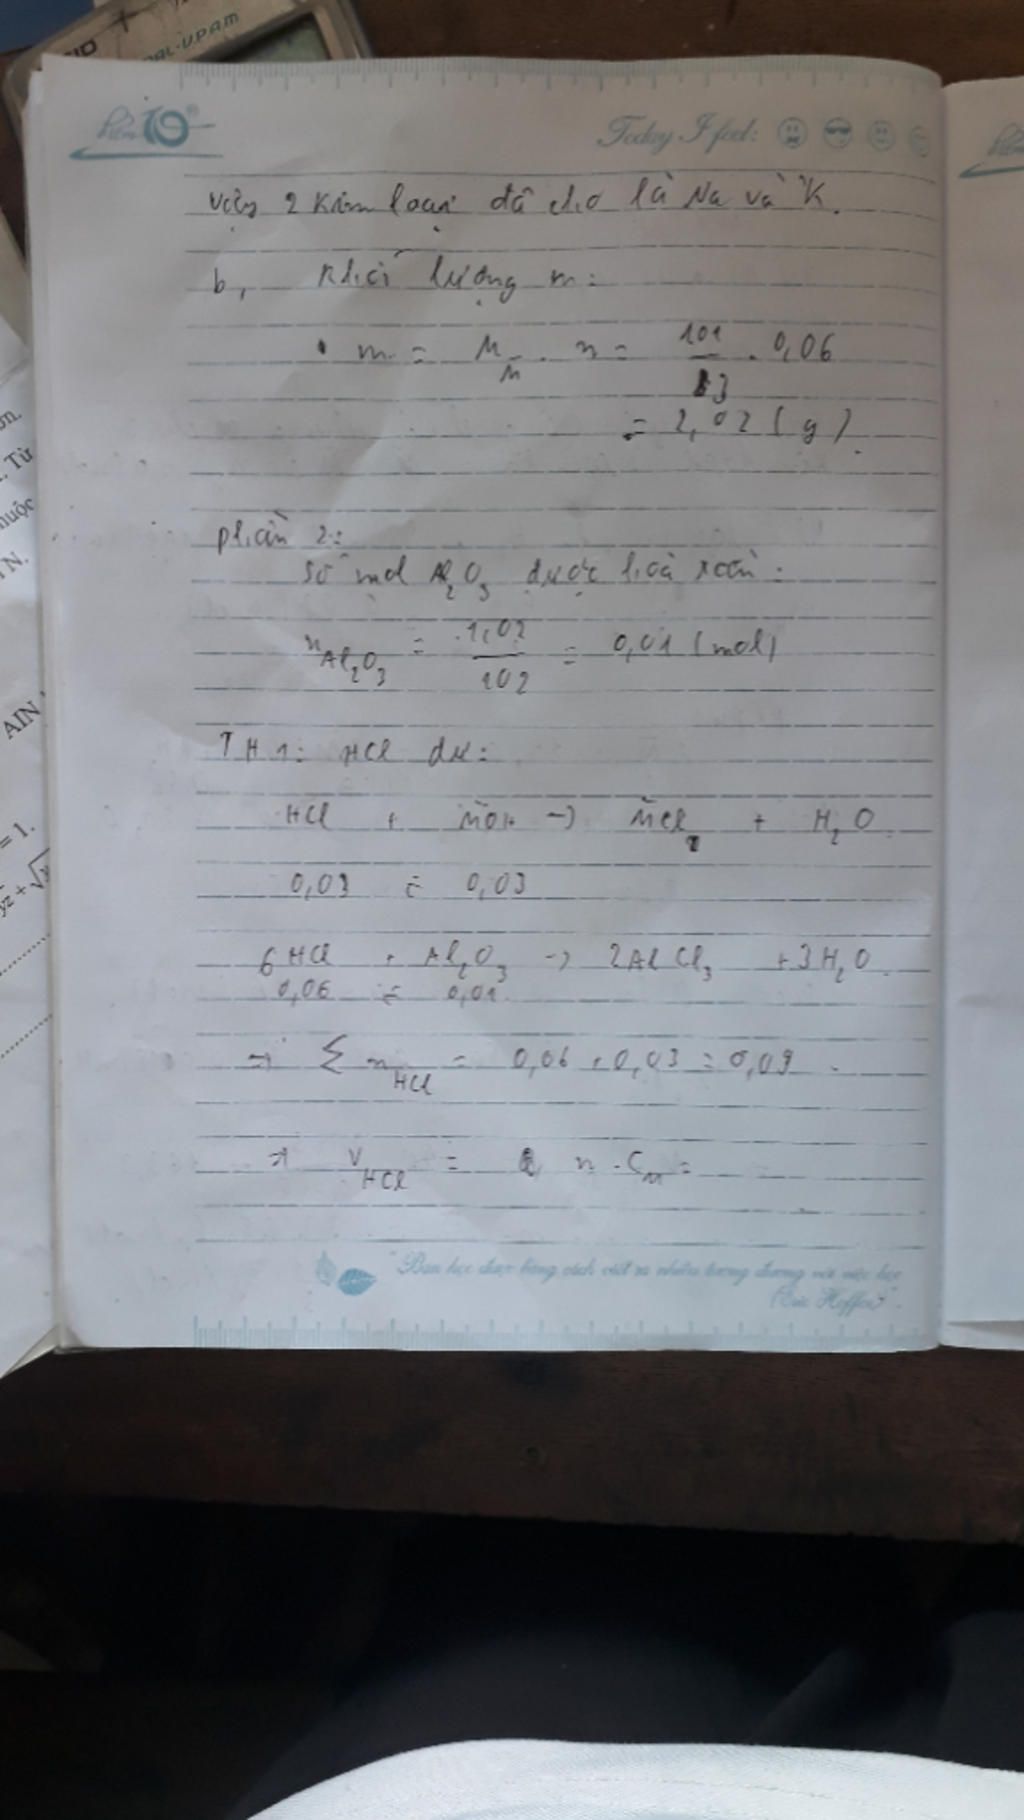 Today I feel:
Vậy 2 kim loại đã cho là Na và K.
b, Khối lượng m:
m = M_M̄ . n = 101/3 . 0,06
= 2,02 (g).
phần 2:
số mol Al₂O₃ được hoà tan:
n Al₂O₃ = 1,02/102 = 0,01 (mol)
TH1: HCl dư:
HCl + M̄OH → M̄Cl + H₂O
0,03 ÷ 0,03
6HCl + Al₂O₃ → 2AlCl₃ + 3H₂O
0,06 ÷ 0,01
⇒ Σ n HCl = 0,06 + 0,03 = 0,09
⇒ V HCl = n . C_M =
"Bạn học được bằng cách viết ra nhiều tương đương với việc học
(Eric Hoffer)".
AIN
= 1.
Từ